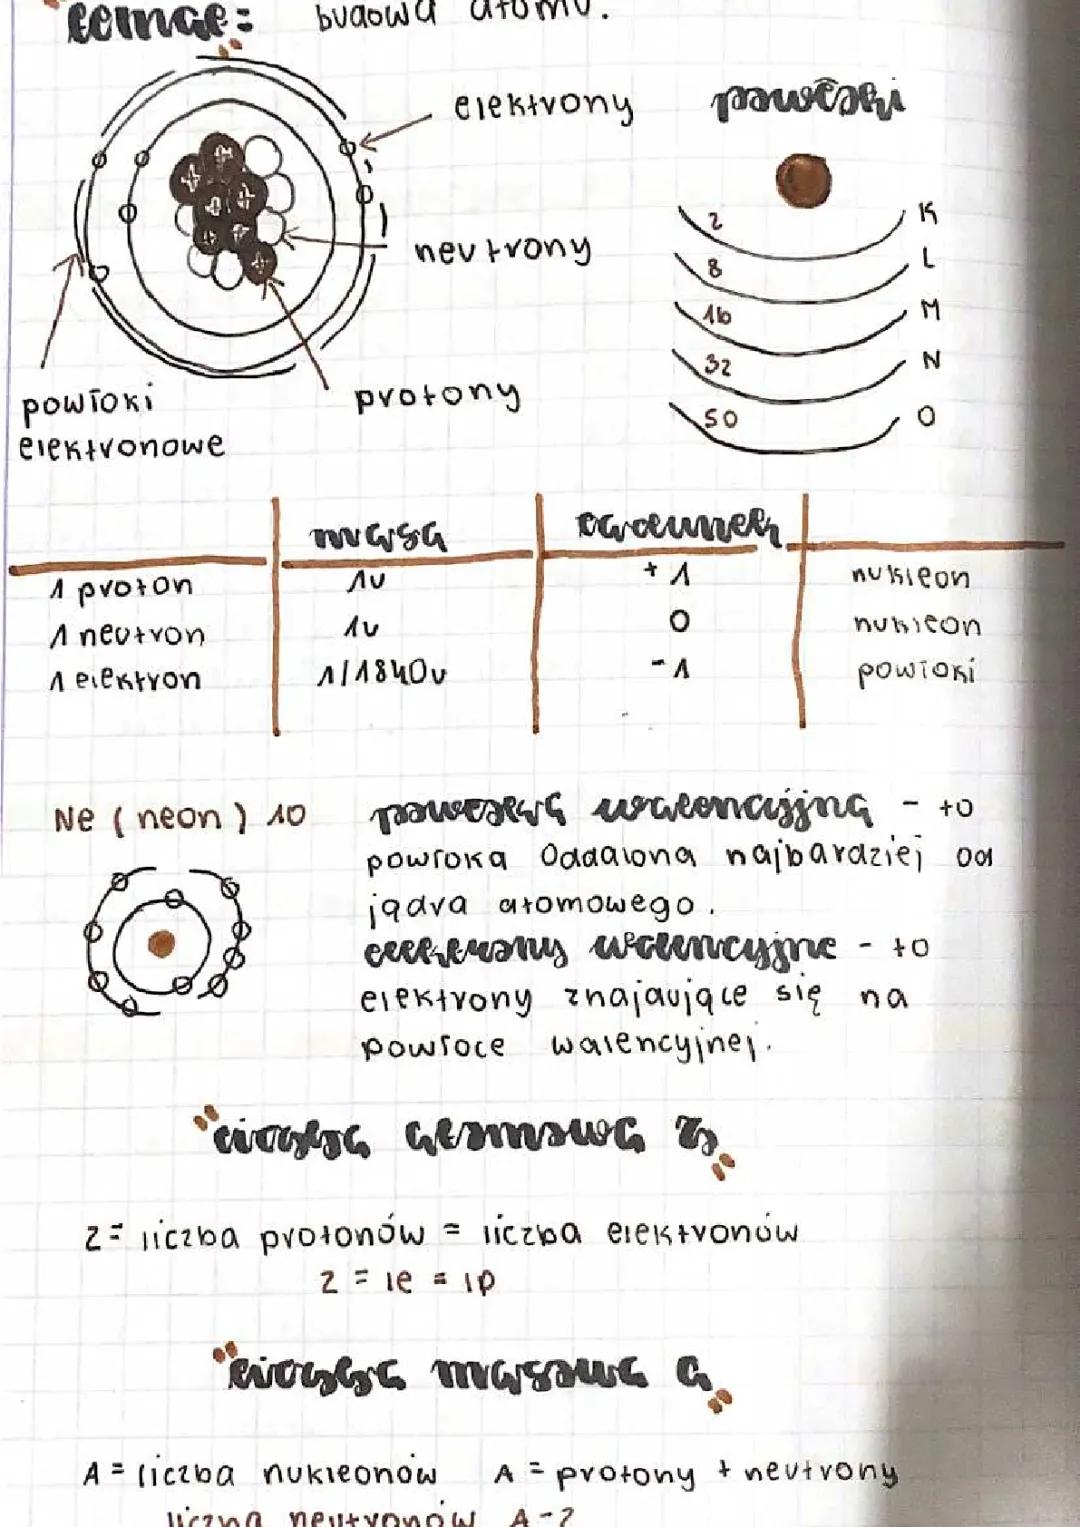 temat: budowa atomu.
elektrony
powłoki
neutrony
protony
powłoki
elektronowe
2 K
8 L
16 M
32 N
50 O
masa ładunek
1 proton 1u +1 nukleon
1 neutron 1u 0 nukleon
1 elektron 1/1840u -1 powłoki
Ne (neon) 10
powłoka walencyjna - to
powłoka oddalona najbardziej od
jądra atomowego.
elektrony walencyjne - to
elektrony znajdujące się na
powłoce walencyjnej.
"liczba atomowa Z"
Z = liczba protonów = liczba elektronów
Z = le = lp
"liczba masowa A"
A = liczba nukleonów A = protony + neutrony
liczba neutronów A-Z